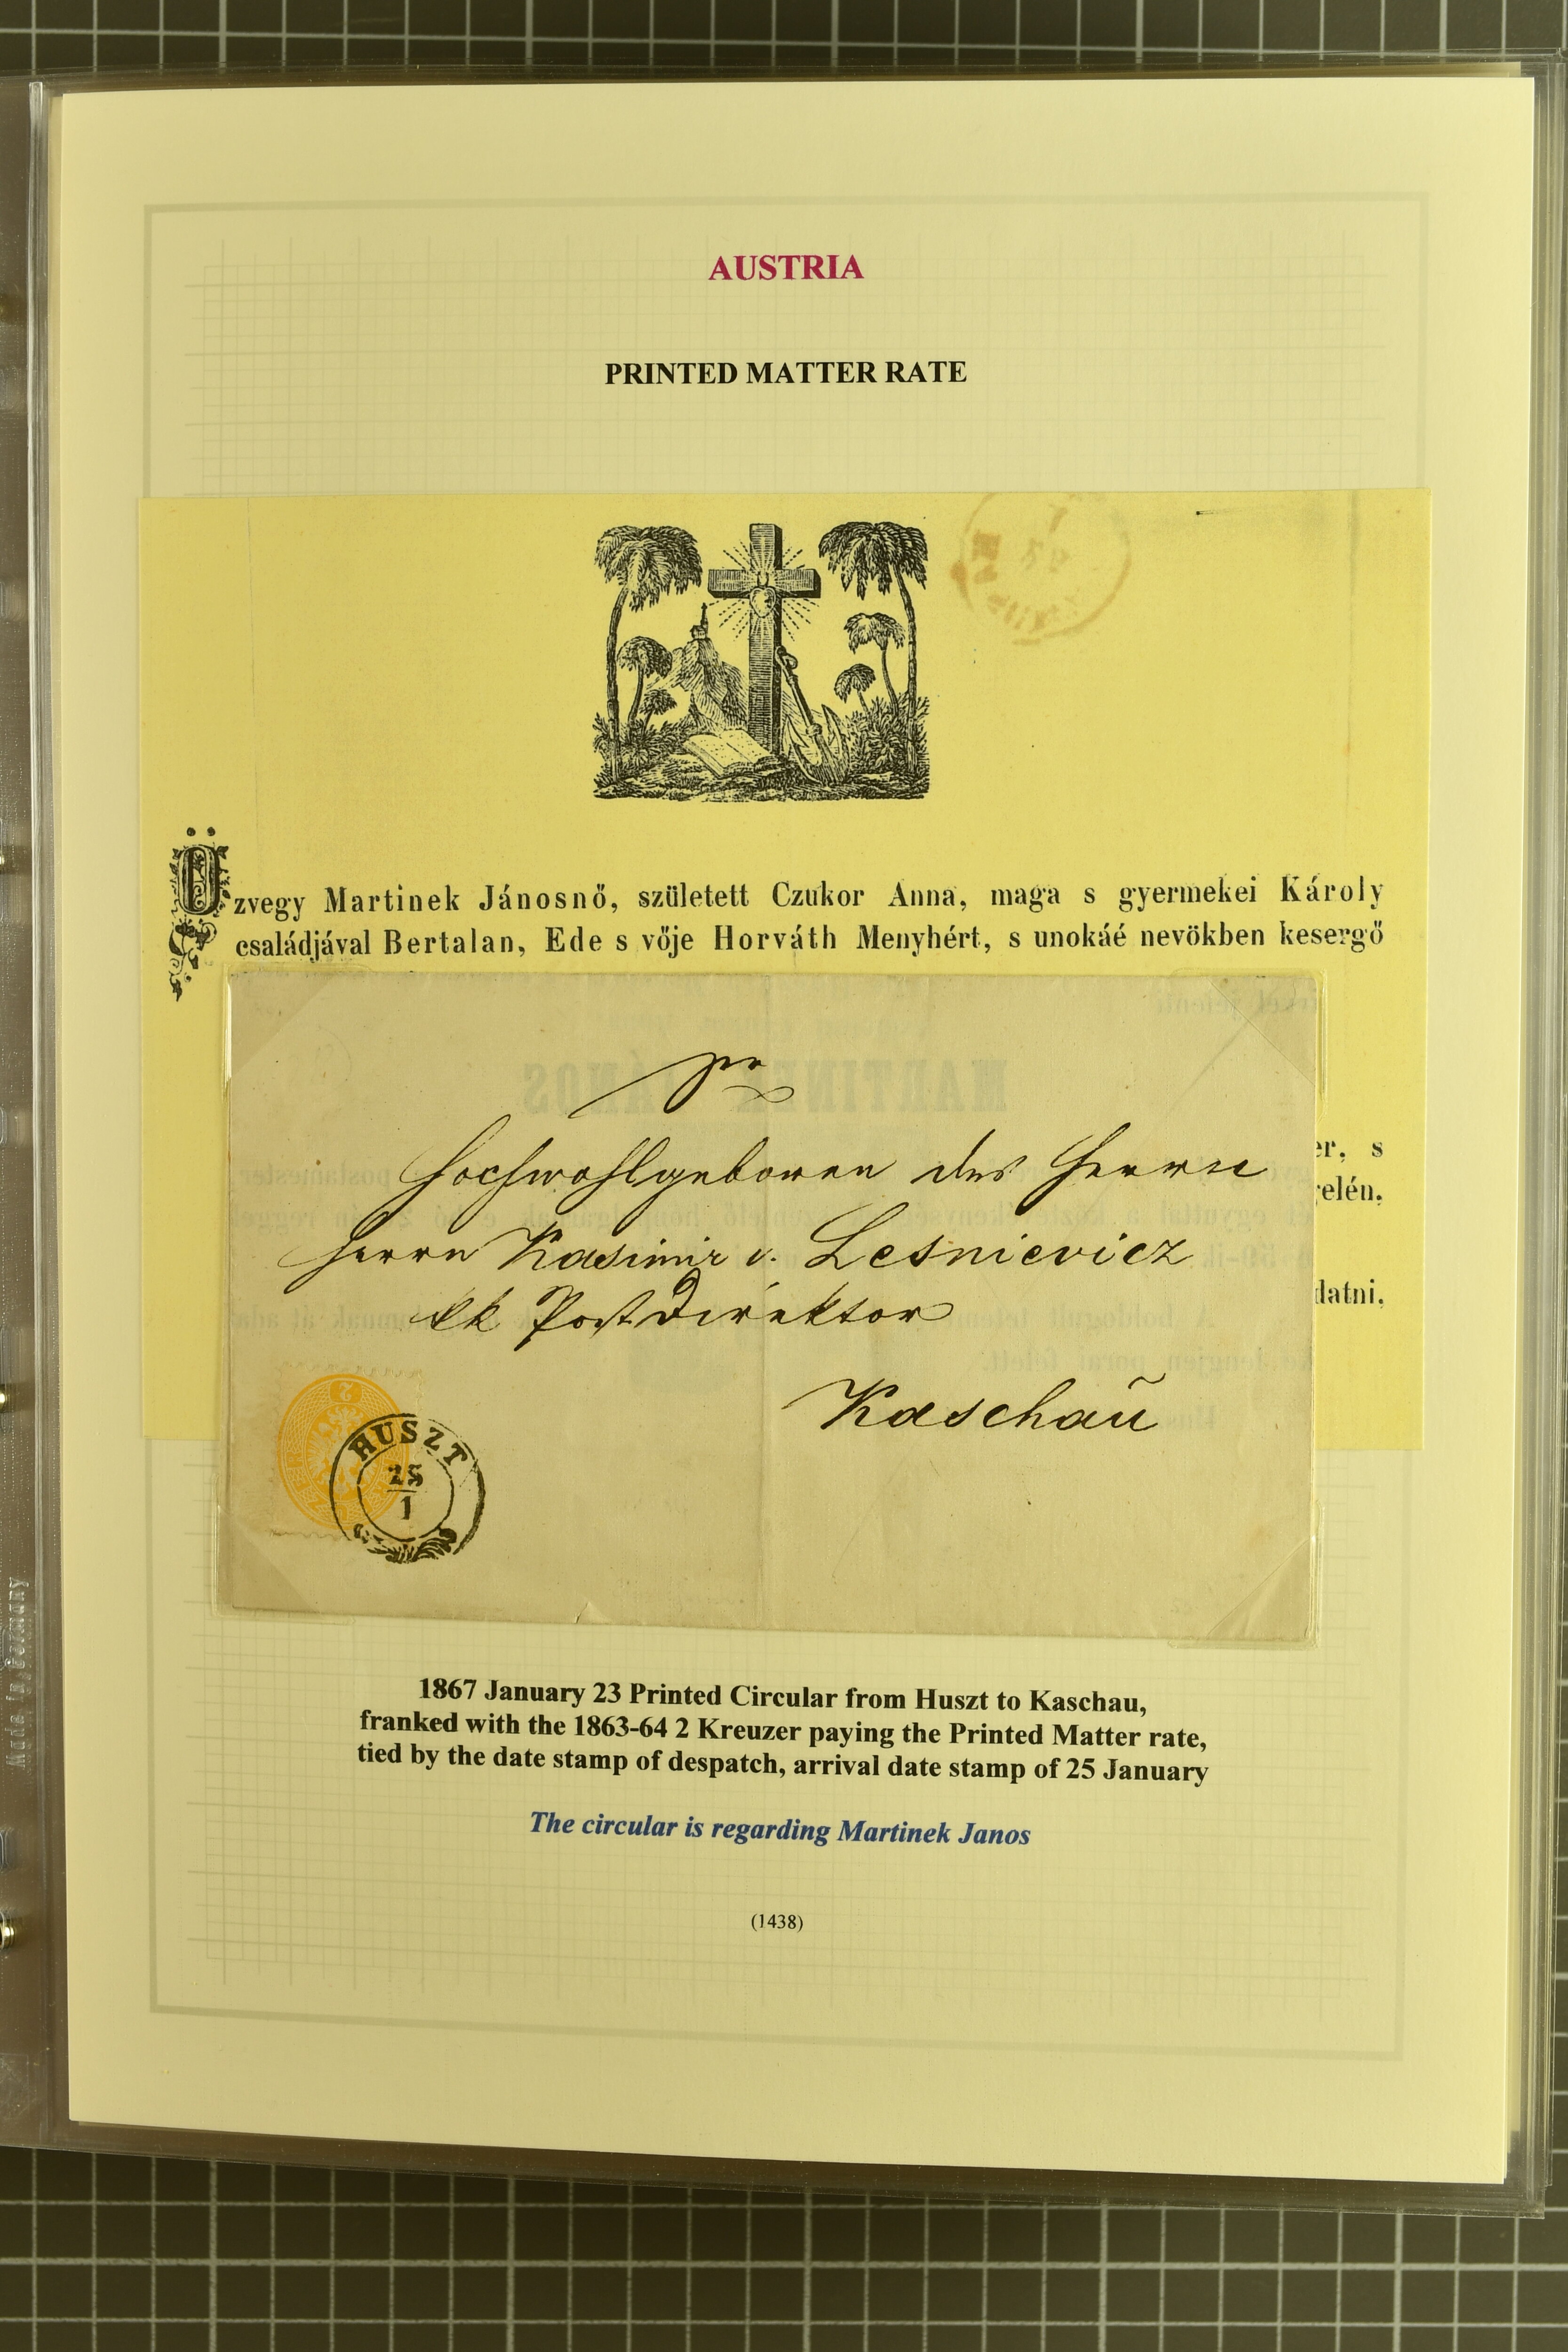 AUSTRIA
PRINTED MATTER RATE
Özvegy Martinek Jánosnő, született Czukor Anna, maga s gyermekei Károly
családjával Bertalan, Ede s vője Horváth Menyhért, s unokáé nevökben kesergő
MARTINEK JÁNOS
er, s
elén.
datni,
Hochwohlgeboren des Herrn
Herrn Kasimir v. Lesnievicz
kk Postdirektor
Kaschaŭ
2
HUSZT
25
1
1867 January 23 Printed Circular from Huszt to Kaschau,
franked with the 1863-64 2 Kreuzer paying the Printed Matter rate,
tied by the date stamp of despatch, arrival date stamp of 25 January
The circular is regarding Martinek Janos
(1438)